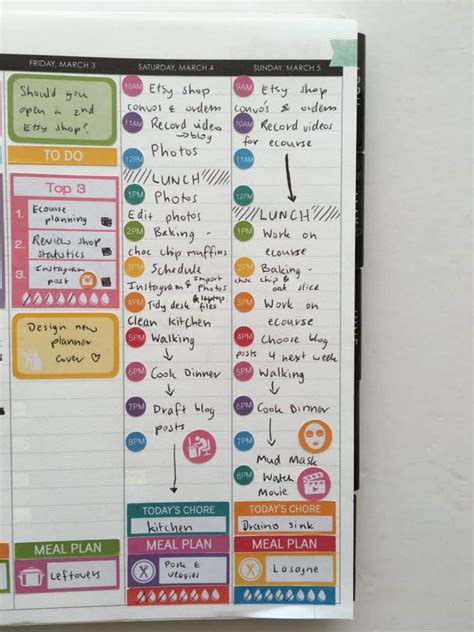 FRIDAY, MARCH 3
Should you
open a 2nd
Etsy shop?
TO DO
Top 3
1. Ecourse
planning
2. Review shop
statistics
3. Instagram
post
Design new
planner
cover
MEAL PLAN
Leftovers
SATURDAY, MARCH 4
10AM Etsy shop
convos & orders
11AM Record video
→ blog
12PM Photos
LUNCH
1PM Photos
Edit photos
2PM Baking -
choc chip muffins
3PM Schedule
Instagram & import
photos
4PM Tidy desk & laptop
files
Clean kitchen
5PM Walking
6PM Cook Dinner
7PM Draft blog
posts
8PM
TODAY'S CHORE
kitchen
MEAL PLAN
Pork &
veggies
SUNDAY, MARCH 5
9AM Etsy shop
convo's & orders
10AM Record videos
for ecourse
11AM
12PM
LUNCH
1PM Work on
ecourse
2PM Baking -
choc chip &
oat slice
3PM Work on
ecourse
4PM Choose blog
posts 4 next week
5PM Walking
6PM Cook Dinner
7PM
Mud Mask
8PM Watch
Movie
TODAY'S CHORE
Draino sink
MEAL PLAN
Lasagne